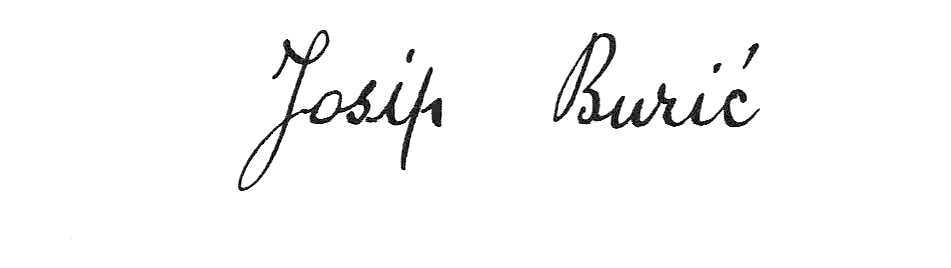 Josip Burić